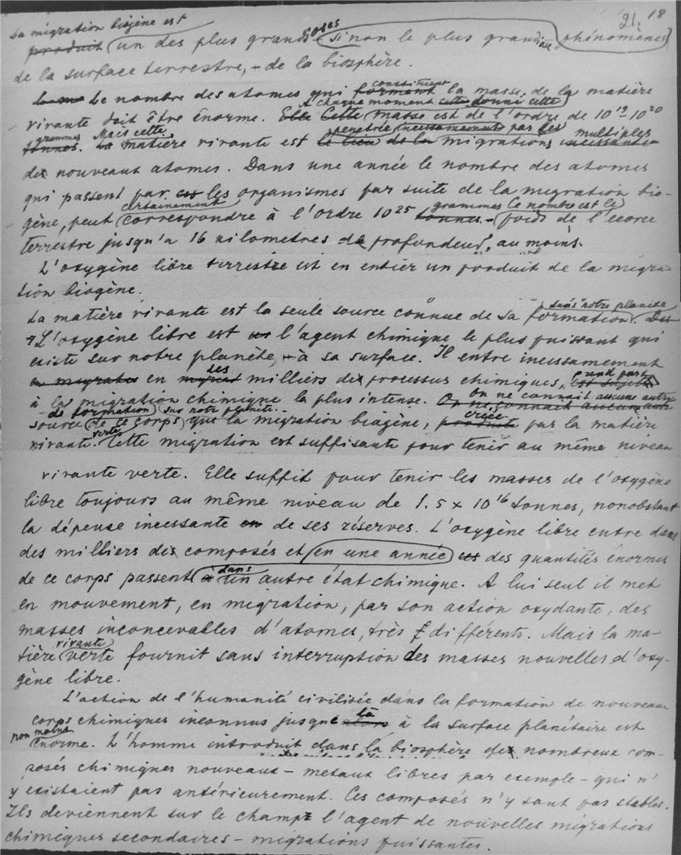 21. 18
La migration biogène est
produit un des plus grandioses si non le plus grandiose, phénomènes
de la surface terrestre, - de la biosphère.
Le nombre des atomes qui constituent forment la masse de la matière
vivante doit être énorme. A chaque moment cette donnée cette Elle Cette masse est de l'ordre de 10¹⁹ 10²⁰
grammes tonnes. Mais cette La matière vivante est pénétrée incessamment par les multiples le lieu de la migrations incessante
de nouveaux atomes. Dans une année le nombre des atomes
qui passent par ces les organismes par suite de la migration bio-
gène, peut certainement correspondre à l'ordre 10²⁵ grammes le nombre est le tonnes - poids de l'écorce
terrestre jusqu'a 16 kilometres de profondeur, au moins.
L'oxygène libre terrestre est en entier un produit de la migra-
tion biogène.
La matière vivante est la seule source connue de sa formation sur notre planète.
L'oxygène libre est l'agent chimique le plus puissant qui
existe sur notre planète, - à sa surface. Il entre incessamment
en ses milliers de processus chimiques,
à la migration chimique la plus intense. On ne connait aucune autre On ne connait aucune autre
source de formation de ce corps sur notre planète que la migration biogène, créée produite par la matière
vivante verte. Cette migration est suffisante pour tenir au même niveau
vivante verte. Elle suffit pour tenir les masses de l'oxygène
libre toujours au même niveau de 1.5 x 10¹⁶ tonnes, nonobstant
la dépense incessante de ses réserves. L'oxygène libre entre dans
des milliers de composés et en une année des quantités énormes
de ce corps passent dans à un autre état chimique. A lui seul il met
en mouvement, en migration, par son action oxydante, des
masses inconcevables d'atomes, très différents. Mais la ma-
tière vivante verte fournit sans interruption des masses nouvelles d'oxy-
gène libre.
L'action de l'humanité civilisée dans la formation de nouveaux
corps chimiques inconnus jusque là à la surface planétaire est
non moins énorme. L'homme introduit dans la biosphère de nombreux com-
posés chimiques nouveaux - metaux libres par exemple - qui n'
y existaient pas antérieurement. Ces composés n'y sont pas stables.
Ils deviennent sur le champ l'agent de nouvelles migrations
chimiques secondaires - migrations puissantes.